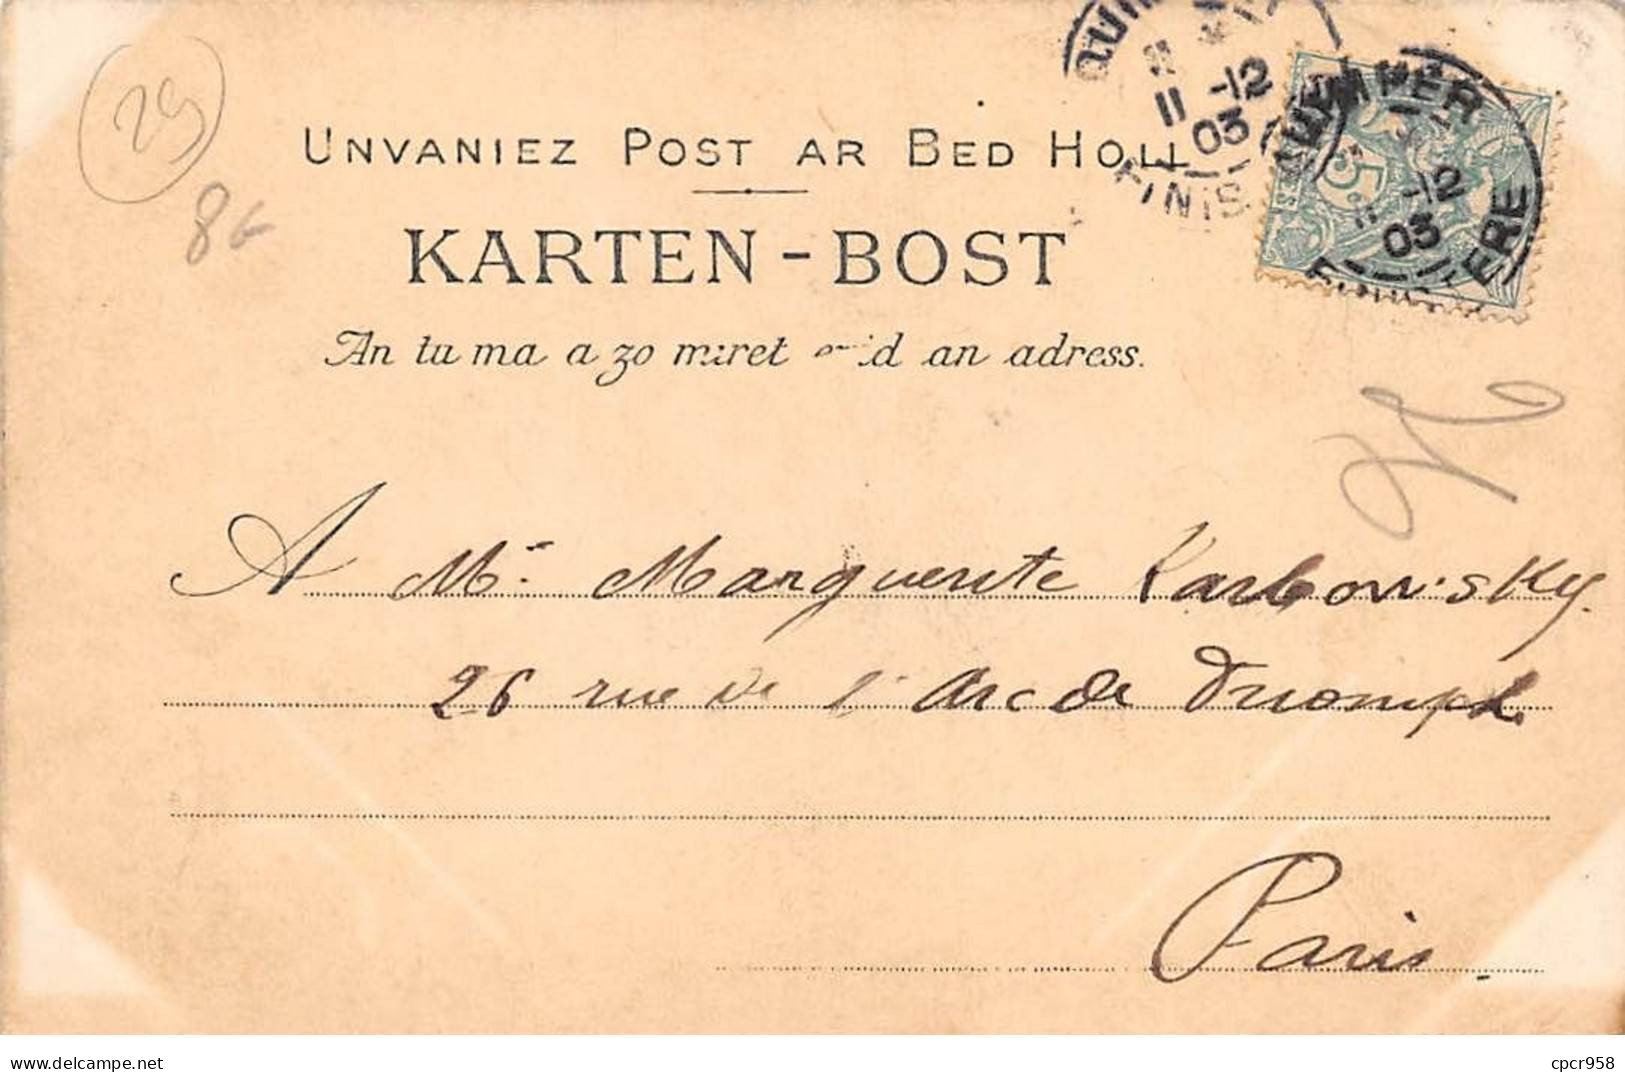 29
8€
UNVANIEZ POST AR BED HOLL
KARTEN-BOST
An tu ma a zo miret d an adress.
QUIMPER
11 -12
03
FINIS
QUIMPER
11 -12
03
FINISTERE
5c
A Mlle Marguerite Karbowsky
26 rue de l'Arc de Triomphe
Paris.
delcampe.net
cpcr958